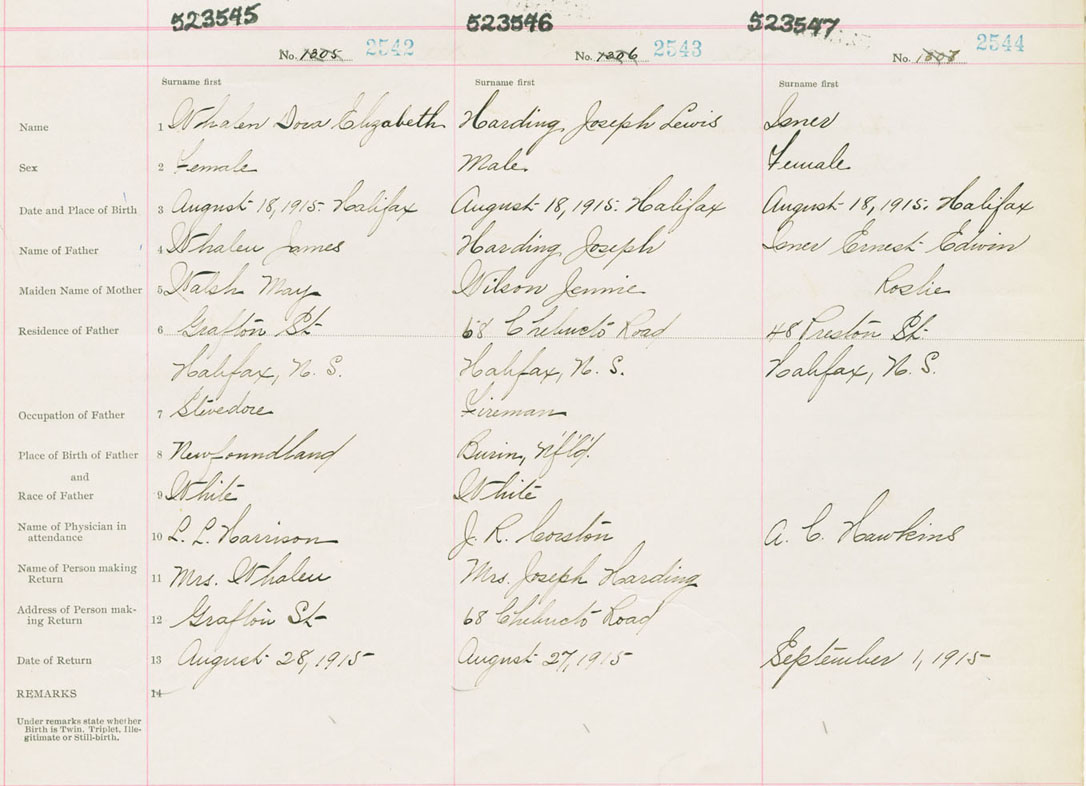 523545 523546 523547
No. 1305 2542 No. 1306 2543 No. 1307 2544
Surname first Surname first Surname first
Name 1 Whalen Dora Elizabeth Harding Joseph Lewis Isner
Sex 2 Female Male Female
Date and Place of Birth 3 August 18, 1915. Halifax August 18, 1915. Halifax August 18, 1915. Halifax
Name of Father 4 Whalen James Harding Joseph Isner Ernest Edwin
Maiden Name of Mother 5 Walsh May Wilson Jennie Roslie
Residence of Father 6 Grafton St. 68 Chebucto Road 48 Preston St.
Halifax, N. S. Halifax, N. S. Halifax, N. S.
Occupation of Father 7 Stevedore Fireman
Place of Birth of Father 8 Newfoundland Burin, Nf'l'd.
and
Race of Father 9 White White
Name of Physician in
attendance 10 L. L. Harrison J. R. Corston A. C. Hawkins
Name of Person making
Return 11 Mrs. Whalen Mrs. Joseph Harding
Address of Person mak-
ing Return 12 Grafton St. 68 Chebucto Road
Date of Return 13 August 28, 1915 August 27, 1915 September 1, 1915
REMARKS 14
Under remarks state whether
Birth is Twin, Triplet, Ille-
gitimate or Still-birth.